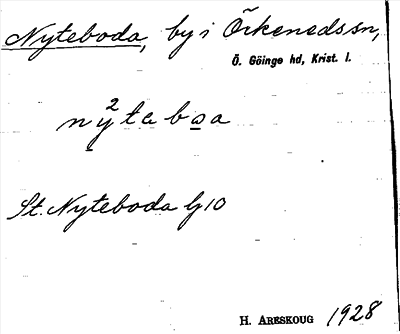 Nyteboda, by i Örkeneds sn,
Ö. Göinge hd, Krist. l.
2
nyteboa
St. Nyteboda lj 10
H. ARESKOUG 1928